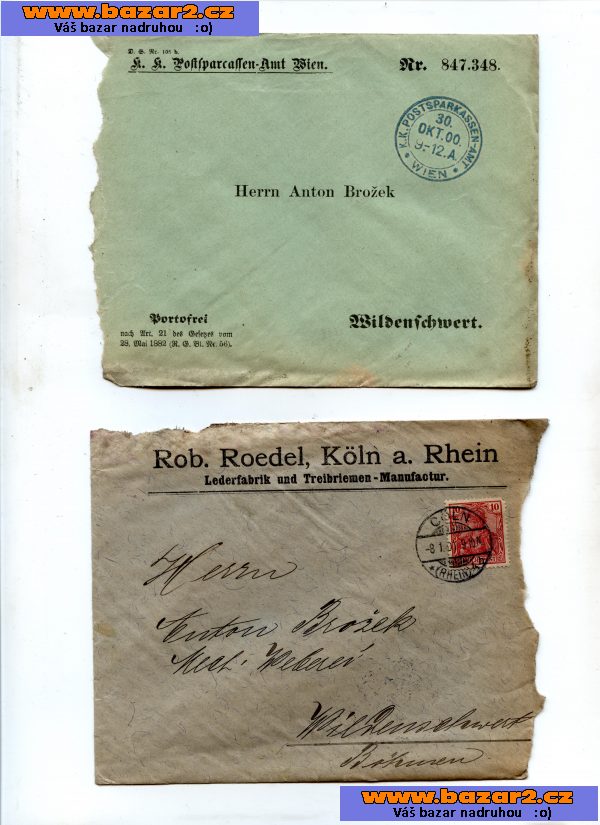 www.bazar2.cz
Váš bazar nadruhou :o)
D. S. Nr. 105 b.
K. K. Postsparcassen-Amt Wien.
Nr. 847.348.
K.K. POSTSPARKASSEN-AMT
30.
OKT.00.
9-12.A.
* WIEN *
Herrn Anton Brožek
Portofrei
nach Art. 21 des Gesetzes vom
28. Mai 1882 (R. G. Bl. Nr. 56).
Wildenschwert.
Rob. Roedel, Köln a. Rhein
Lederfabrik und Treibriemen-Manufactur.
10
CÖLN
(RHEIN)
Herrn
Anton Brožek
Mech. Weberei
Wildenschwert
Böhmen
www.bazar2.cz
Váš bazar nadruhou :o)